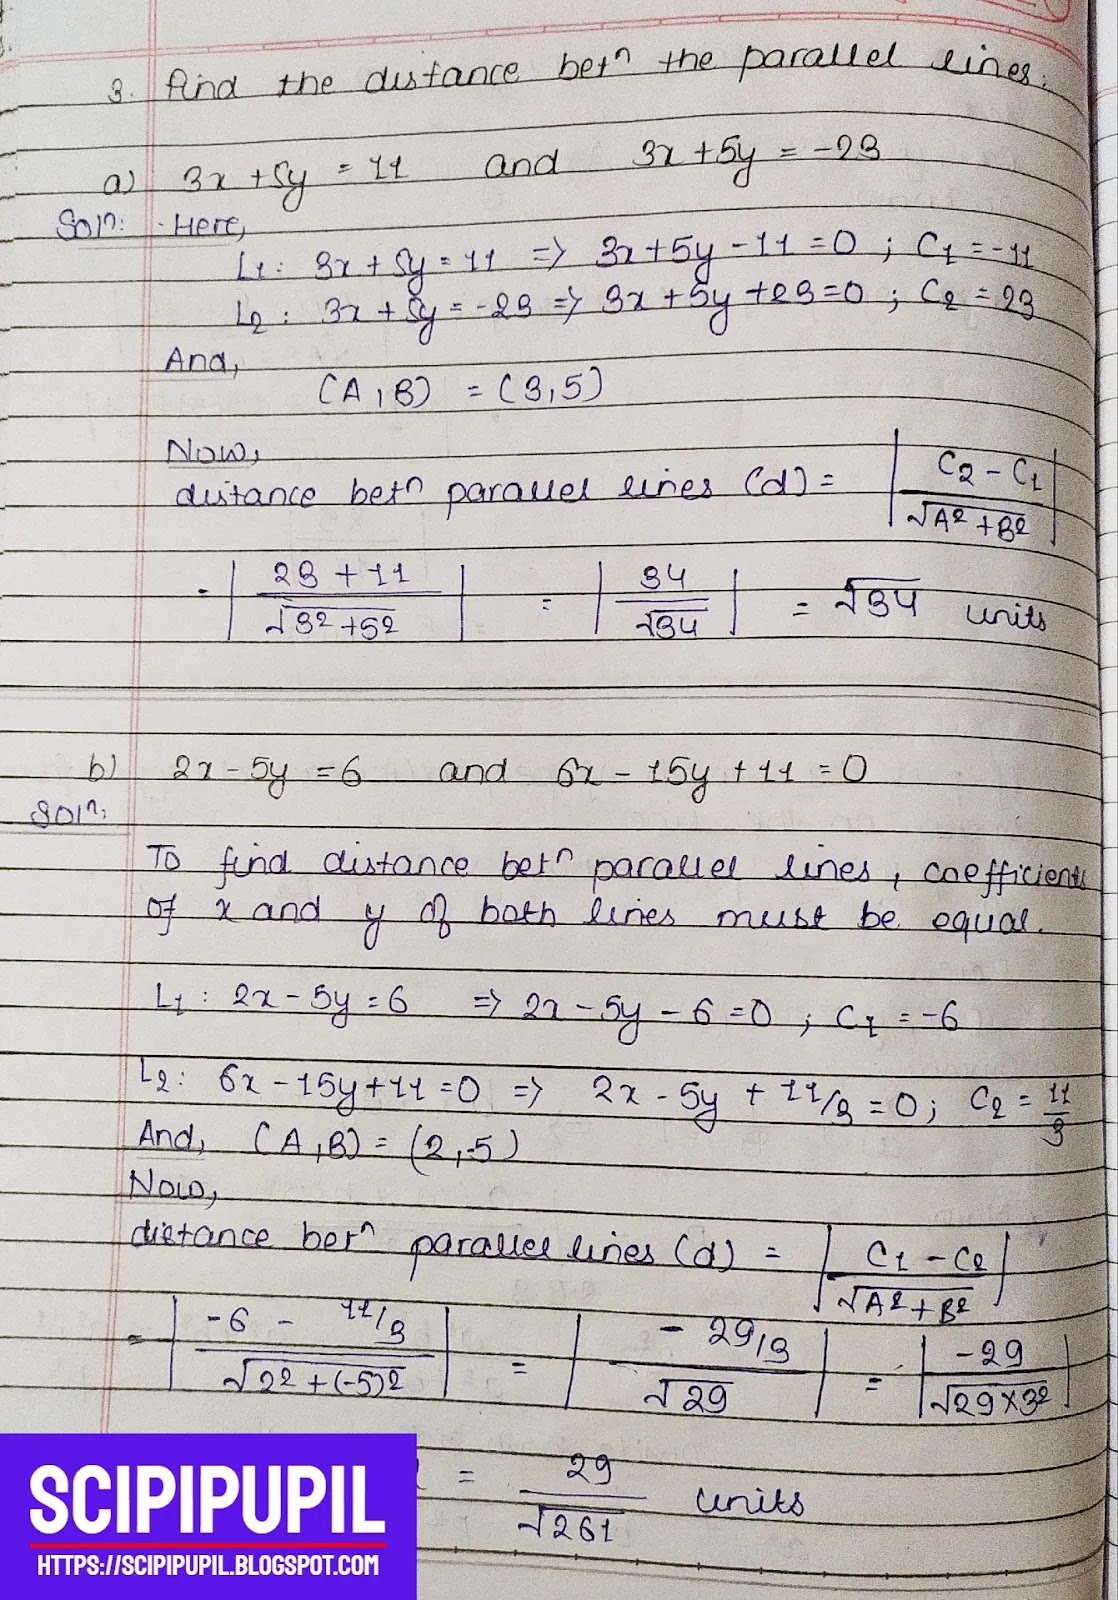 3. Find the distance betn the parallel lines.
a) 3x + 5y = 11 and 3x + 5y = -23
Soln: Here,
L1: 3x + 5y = 11 => 3x + 5y - 11 = 0 ; C1 = -11
L2: 3x + 5y = -23 => 3x + 5y + 23 = 0 ; C2 = 23
And,
(A, B) = (3, 5)
Now,
distance betn parallel lines (d) = | (C2 - C1) / √(A² + B²) |
= | (23 + 11) / √(3² + 5²) | = | 34 / √34 | = √34 units
b) 2x - 5y = 6 and 6x - 15y + 11 = 0
Soln:
To find distance betn parallel lines, coefficients
of x and y of both lines must be equal.
L1: 2x - 5y = 6 => 2x - 5y - 6 = 0 ; C1 = -6
L2: 6x - 15y + 11 = 0 => 2x - 5y + 11/3 = 0 ; C2 = 11/3
And, (A, B) = (2, -5)
Now,
distance betn parallel lines (d) = | (C1 - C2) / √(A² + B²) |
= | (-6 - 11/3) / √(2² + (-5)²) | = | (-29/3) / √29 | = | -29 / √(29×3²) |
= 29 / √261 units
SCIPIPUPIL
HTTPS://SCIPIPUPIL.BLOGSPOT.COM